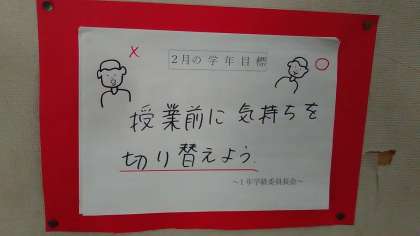 2月の学年目標
授業前に気持ちを
切り替えよう.
～1年学級委員長会～